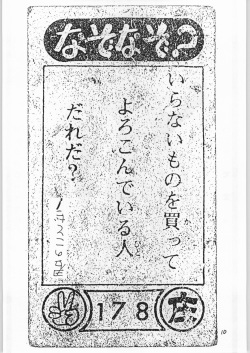 なぞなぞ?
いらないものを買って
よろこんでいる人
だれだ?
178
左
10